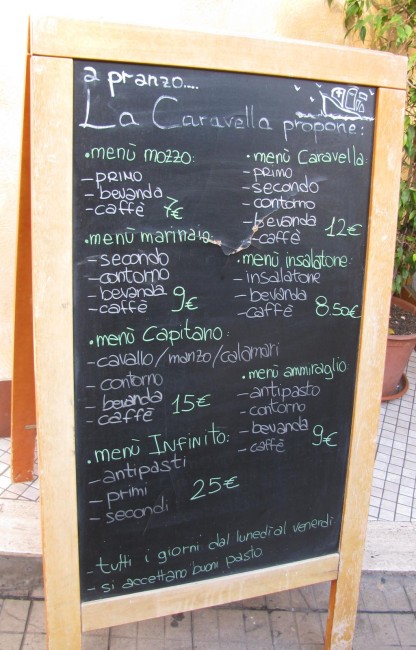 a pranzo....
La Caravella propone:
• menù mozzo:
- primo
- bevanda
- caffè 7€
• menù marinaio:
- secondo
- contorno
- bevanda
- caffè 9€
• menù Capitano:
- cavallo/manzo/calamari
- contorno
- bevanda
- caffè 15€
• menù INFINITO:
- antipasti
- primi
- secondi 25€
• menù Caravella:
- primo
- secondo
- contorno
- bevanda
- caffè 12€
• menù insalatone:
- insalatone
- bevanda
- caffè 8.50€
• menù ammiraglio:
- antipasto
- contorno
- bevanda
- caffè 9€
- tutti i giorni dal lunedì al venerdì
- si accettano buoni pasto.